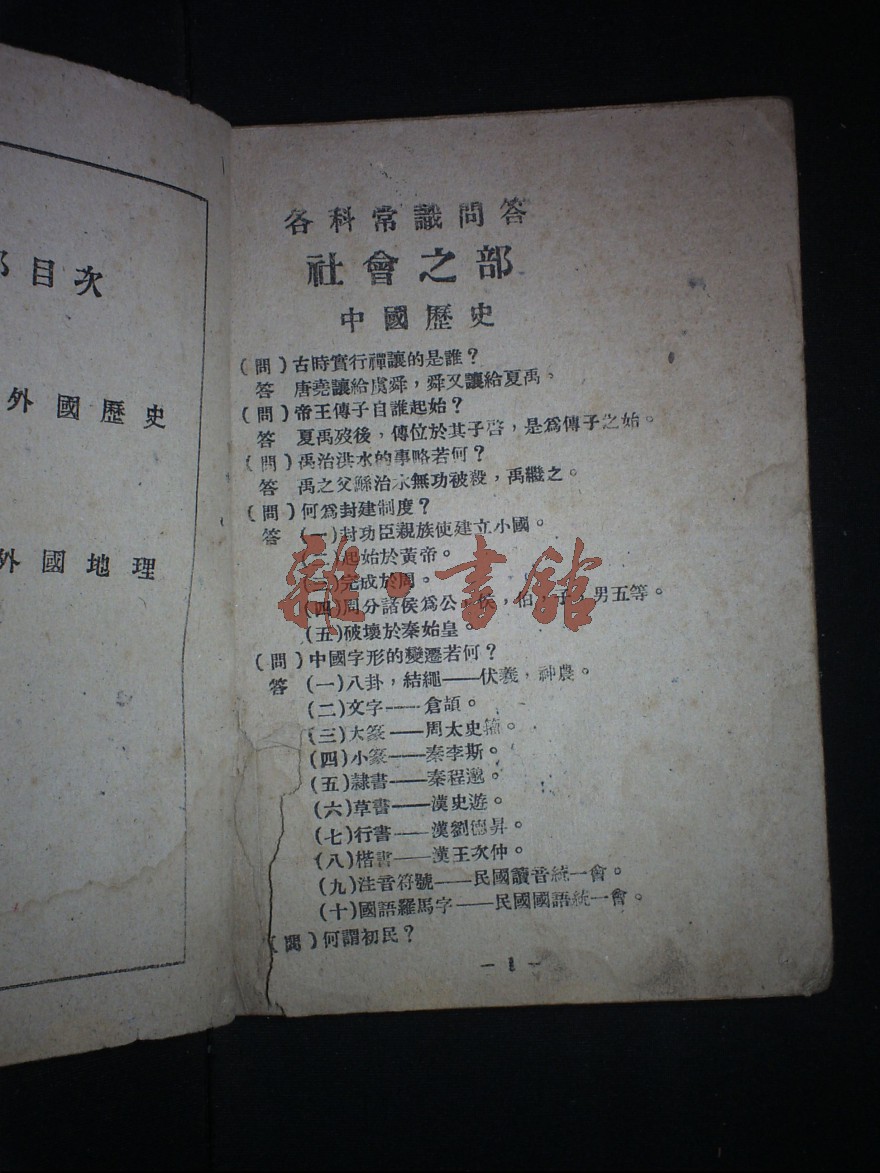 目次
外國歷史
外國地理
各科常識問答
社會之部
中國歷史
(問)古時實行禪讓的是誰？
答 唐堯讓給虞舜，舜又讓給夏禹。
(問)帝王傳子自誰起始？
答 夏禹歿後，傳位於其子啓，是爲傳子之始。
(問)禹治洪水的事略若何？
答 禹之父鯀治水無功被殺，禹繼之。
(問)何爲封建制度？
答 (一)封功臣親族使建立小國。
(二)起始於黃帝。
(三)完成於周。
(四)周分諸侯爲公，侯，伯，子，男五等。
(五)破壞於秦始皇。
(問)中國字形的變遷若何？
答 (一)八卦，結繩——伏羲，神農。
(二)文字——倉頡。
(三)大篆——周太史籀。
(四)小篆——秦李斯。
(五)隸書——秦程邈。
(六)草書——漢史遊。
(七)行書——漢劉德昇。
(八)楷書——漢王次仲。
(九)注音符號——民國讀音統一會。
(十)國語羅馬字——民國國語統一會。
(問)何謂初民？
— 1 —
雜·書館